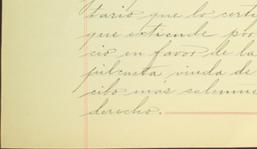 tario que lo certi
que extiende por
cio en favor de la
viuda de
cibo mas solemne
derecho.